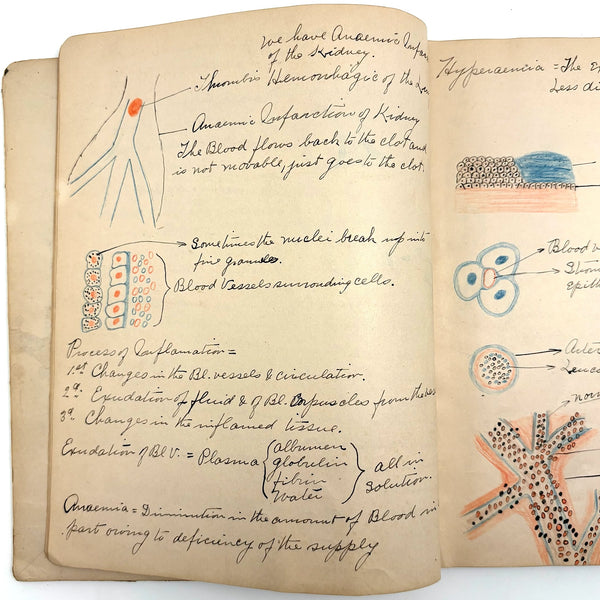 We have Anaemic Infar
of the Kidney.
Thrombis Hemorrhagic of the
Anaemic Infarction of Kidney
The Blood flows back to the clot and
is not movable, just goes to the clot.
Sometimes the nuclei break up into
fine granules.
Blood Vessels surrounding cells.
Process of Inflamation =
1.st Changes in the Bl. vessels & circulation.
2d. Exudation of fluid & of Bl. Corpuscles from the
3d. Changes in the inflamed tissue.
Exudation of Bl V. = Plasma { albumen
globulin
fibrin
water } all in
solution.
Anaemia = Diminution in the amount of Blood in
part owing to deficiency of the supply
Hyperaemia = The Ex
Less di
Blood v
Stom
epith
Arter
Leuco
norm